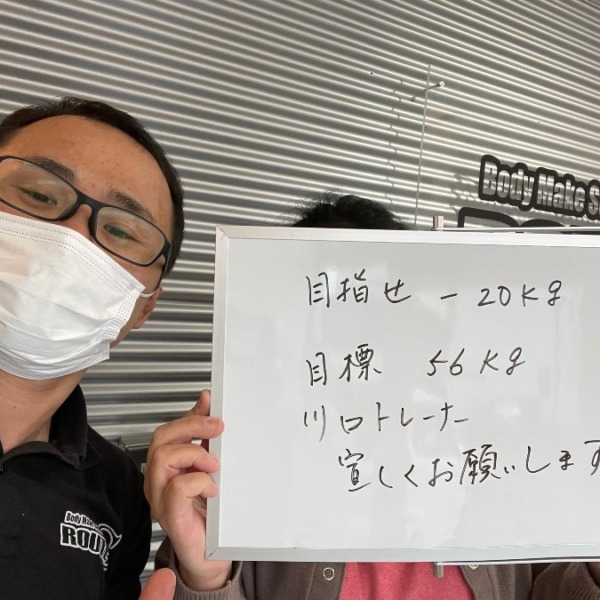 Body Make S
目指せ -20kg
目標 56kg
川口トレーナー
宜しくお願いします
Body Make
ROUT